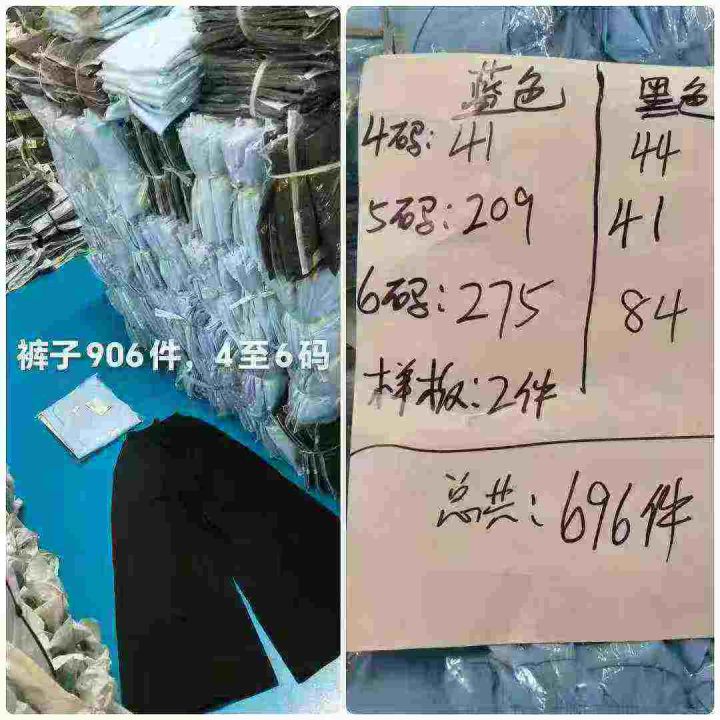 裤子906件，4至6码
蓝色 黑色
4码: 41 44
5码: 209 41
6码: 275 84
样板: 2件
总共: 696件